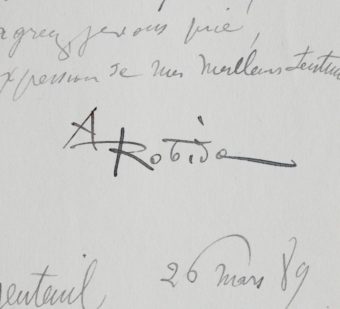 agréez, je vous prie,
xpression de mes meilleurs sentim
A Robida
genteuil, 26 mars 89